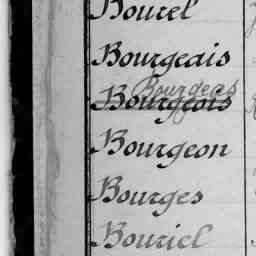 Bourel
Bourgeais
Bourgeas
Bourgeois
Bourgeon
Bourges
Bouriel